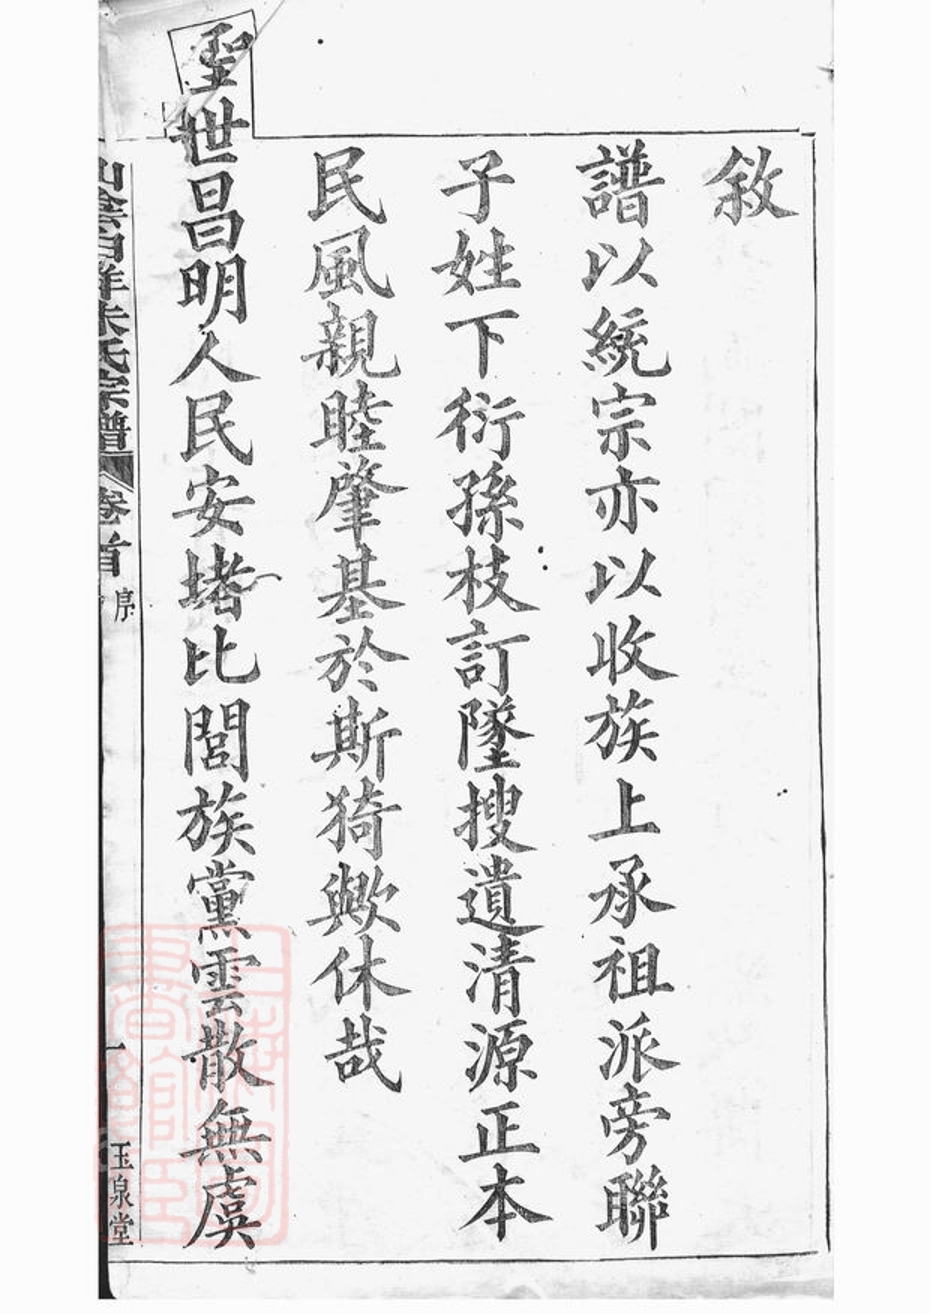 敘
譜以統宗亦以收族上承祖派旁聯
子姓下衍孫枝訂墜搜遺清源正本
民風親睦肇基於斯猗歟休哉
聖世昌明人民安堵比閭族黨雲散無虞
山陰白洋朱氏宗譜 卷首 序 一 玉泉堂